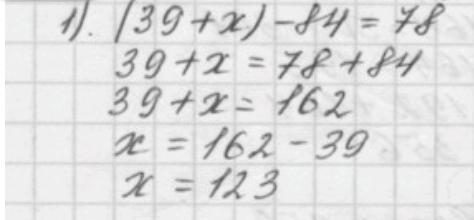 1). (39+x)-84=78
39+x=78+84
39+x=162
x=162-39
x=123